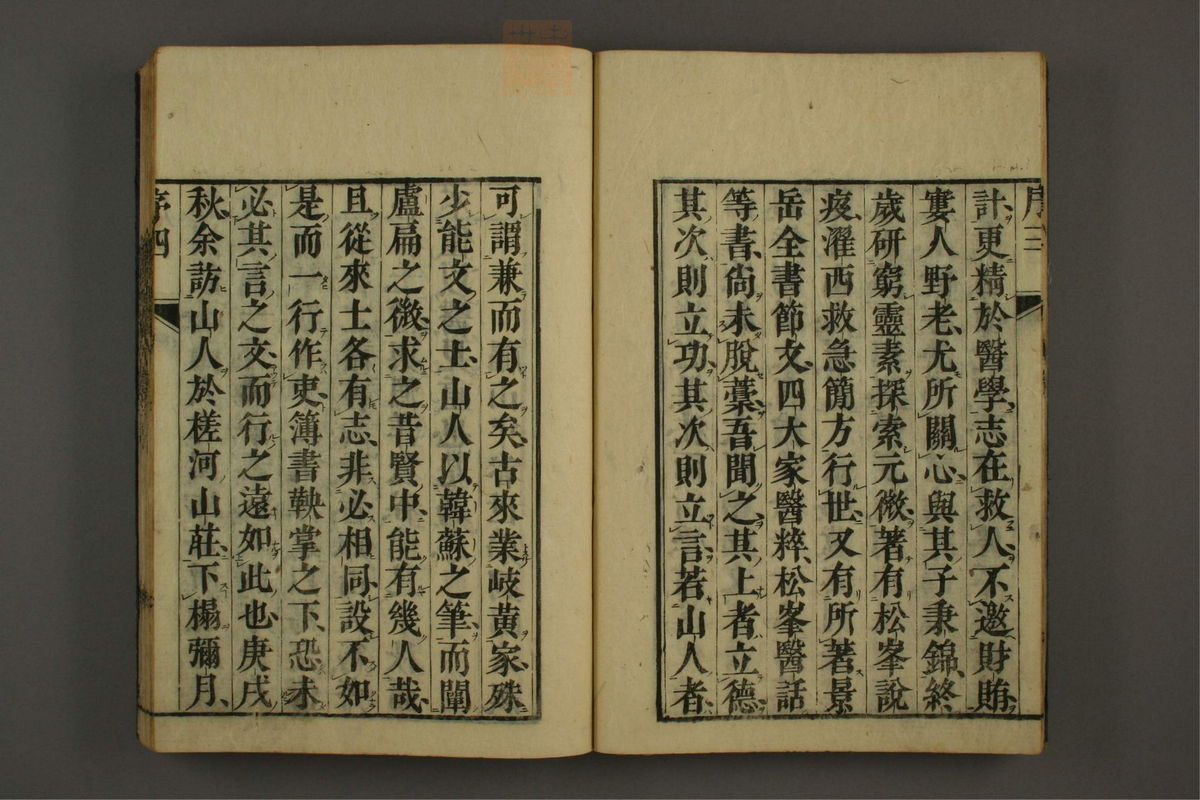 序三
計更精於醫學志在救人不邀財賄
寠人野老尤所關心與其子秉錦終
歲研窮靈素探索元微著有松峯說
疫濯西救急簡方行世又有所著景
岳全書節文四大家醫粹松峯醫話
等書尚未脫藁吾聞之其上者立德
其次則立功其次則立言若山人者
可謂兼而有之矣古來業岐黃家殊
少能文之士山人以韓蘇之筆而闡
盧扁之微求之昔賢中能有幾人哉
且從來士各有志非必相同設不如
是而一行作吏簿書鞅掌之下恐未
必其言之文而行之遠如此也庚戌
秋余訪山人於槎河山莊下榻彌月
序四